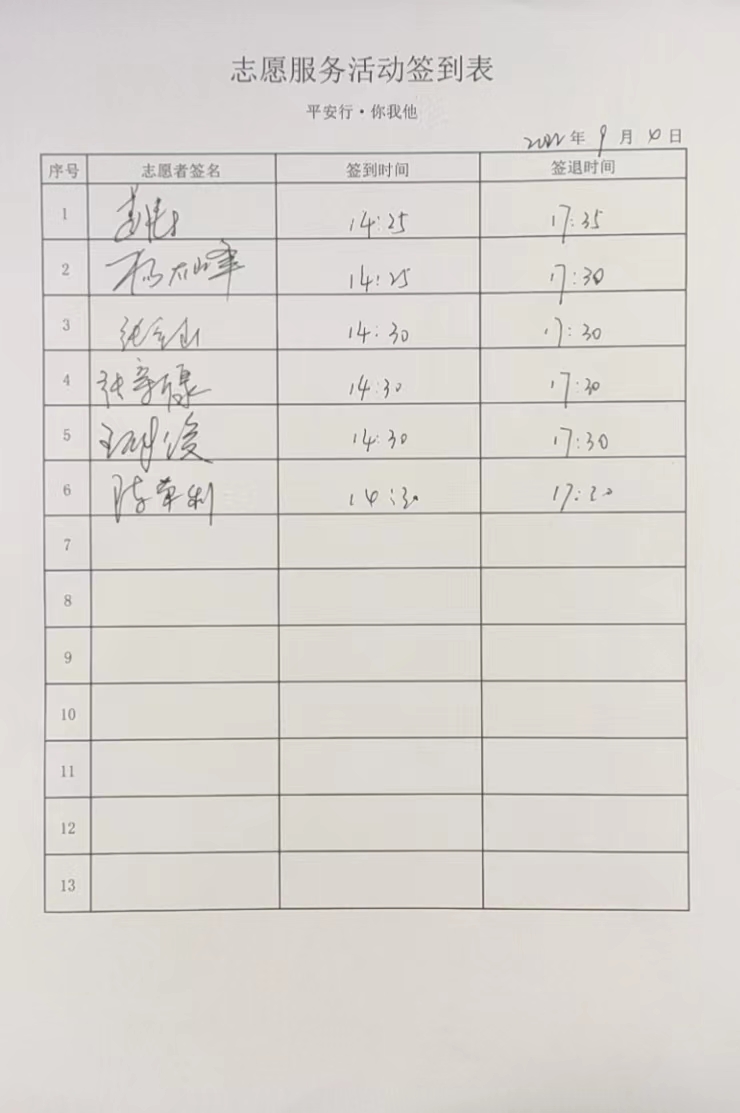 志愿服务活动签到表
平安行·你我他
2022年9月10日
序号 志愿者签名 签到时间 签退时间
1 14:25 17:35
2 14:25 17:30
3 14:30 17:30
4 张新康 14:30 17:30
5 14:30 17:30
6 陈草利 14:30 17:30
7
8
9
10
11
12
13